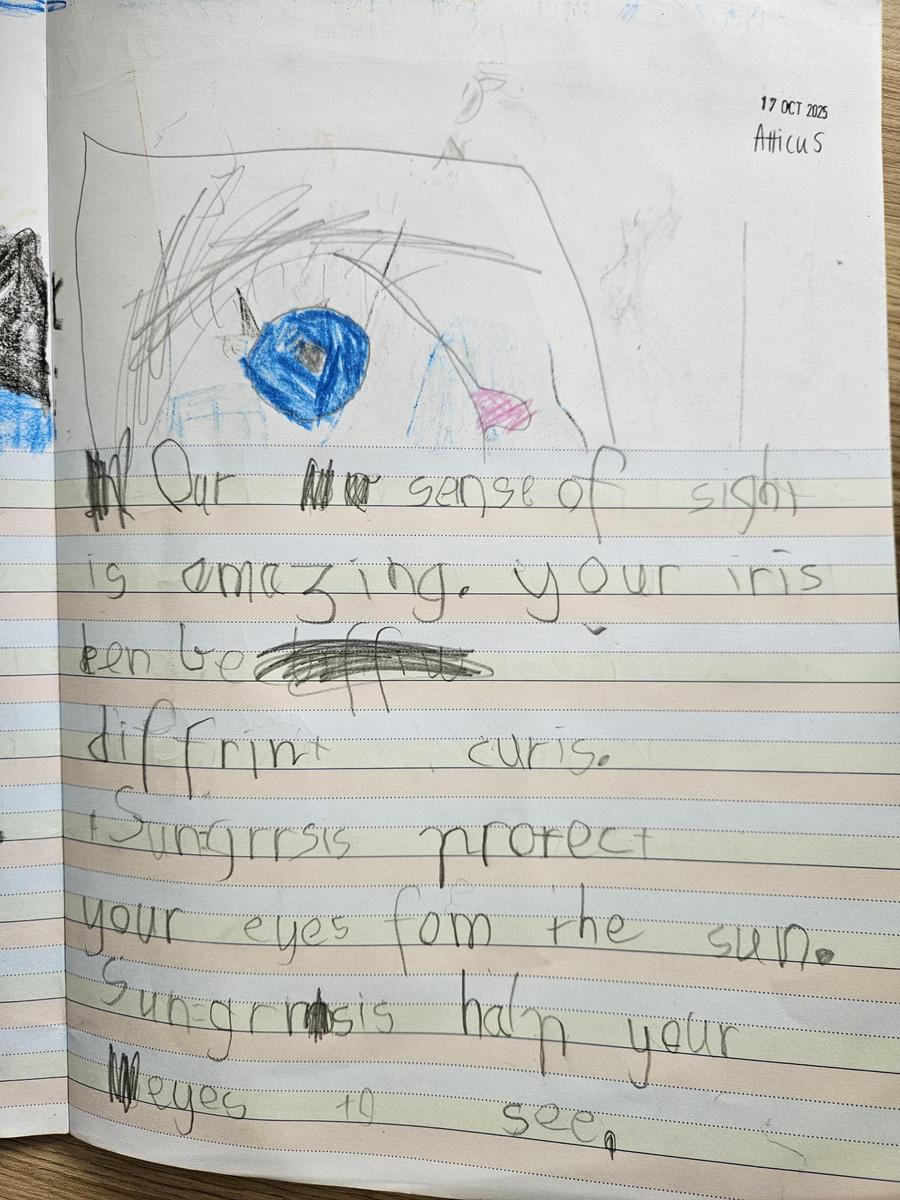 17 OCT 2025
Atticus
Our sense of sight
is amazing. your iris
ken be
diffrint curis.
Sun=grrsis protect
your eyes fom the sun.
Sun=grrsis halp your
eyes to see,